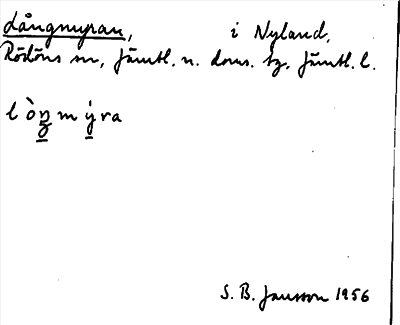 Långmyran, i Nyland,
Rödöns sn, Jämtl. n. doms. tg, Jämtl. l.
l ò ŋ m ý ra
S. B. Jansson 1956